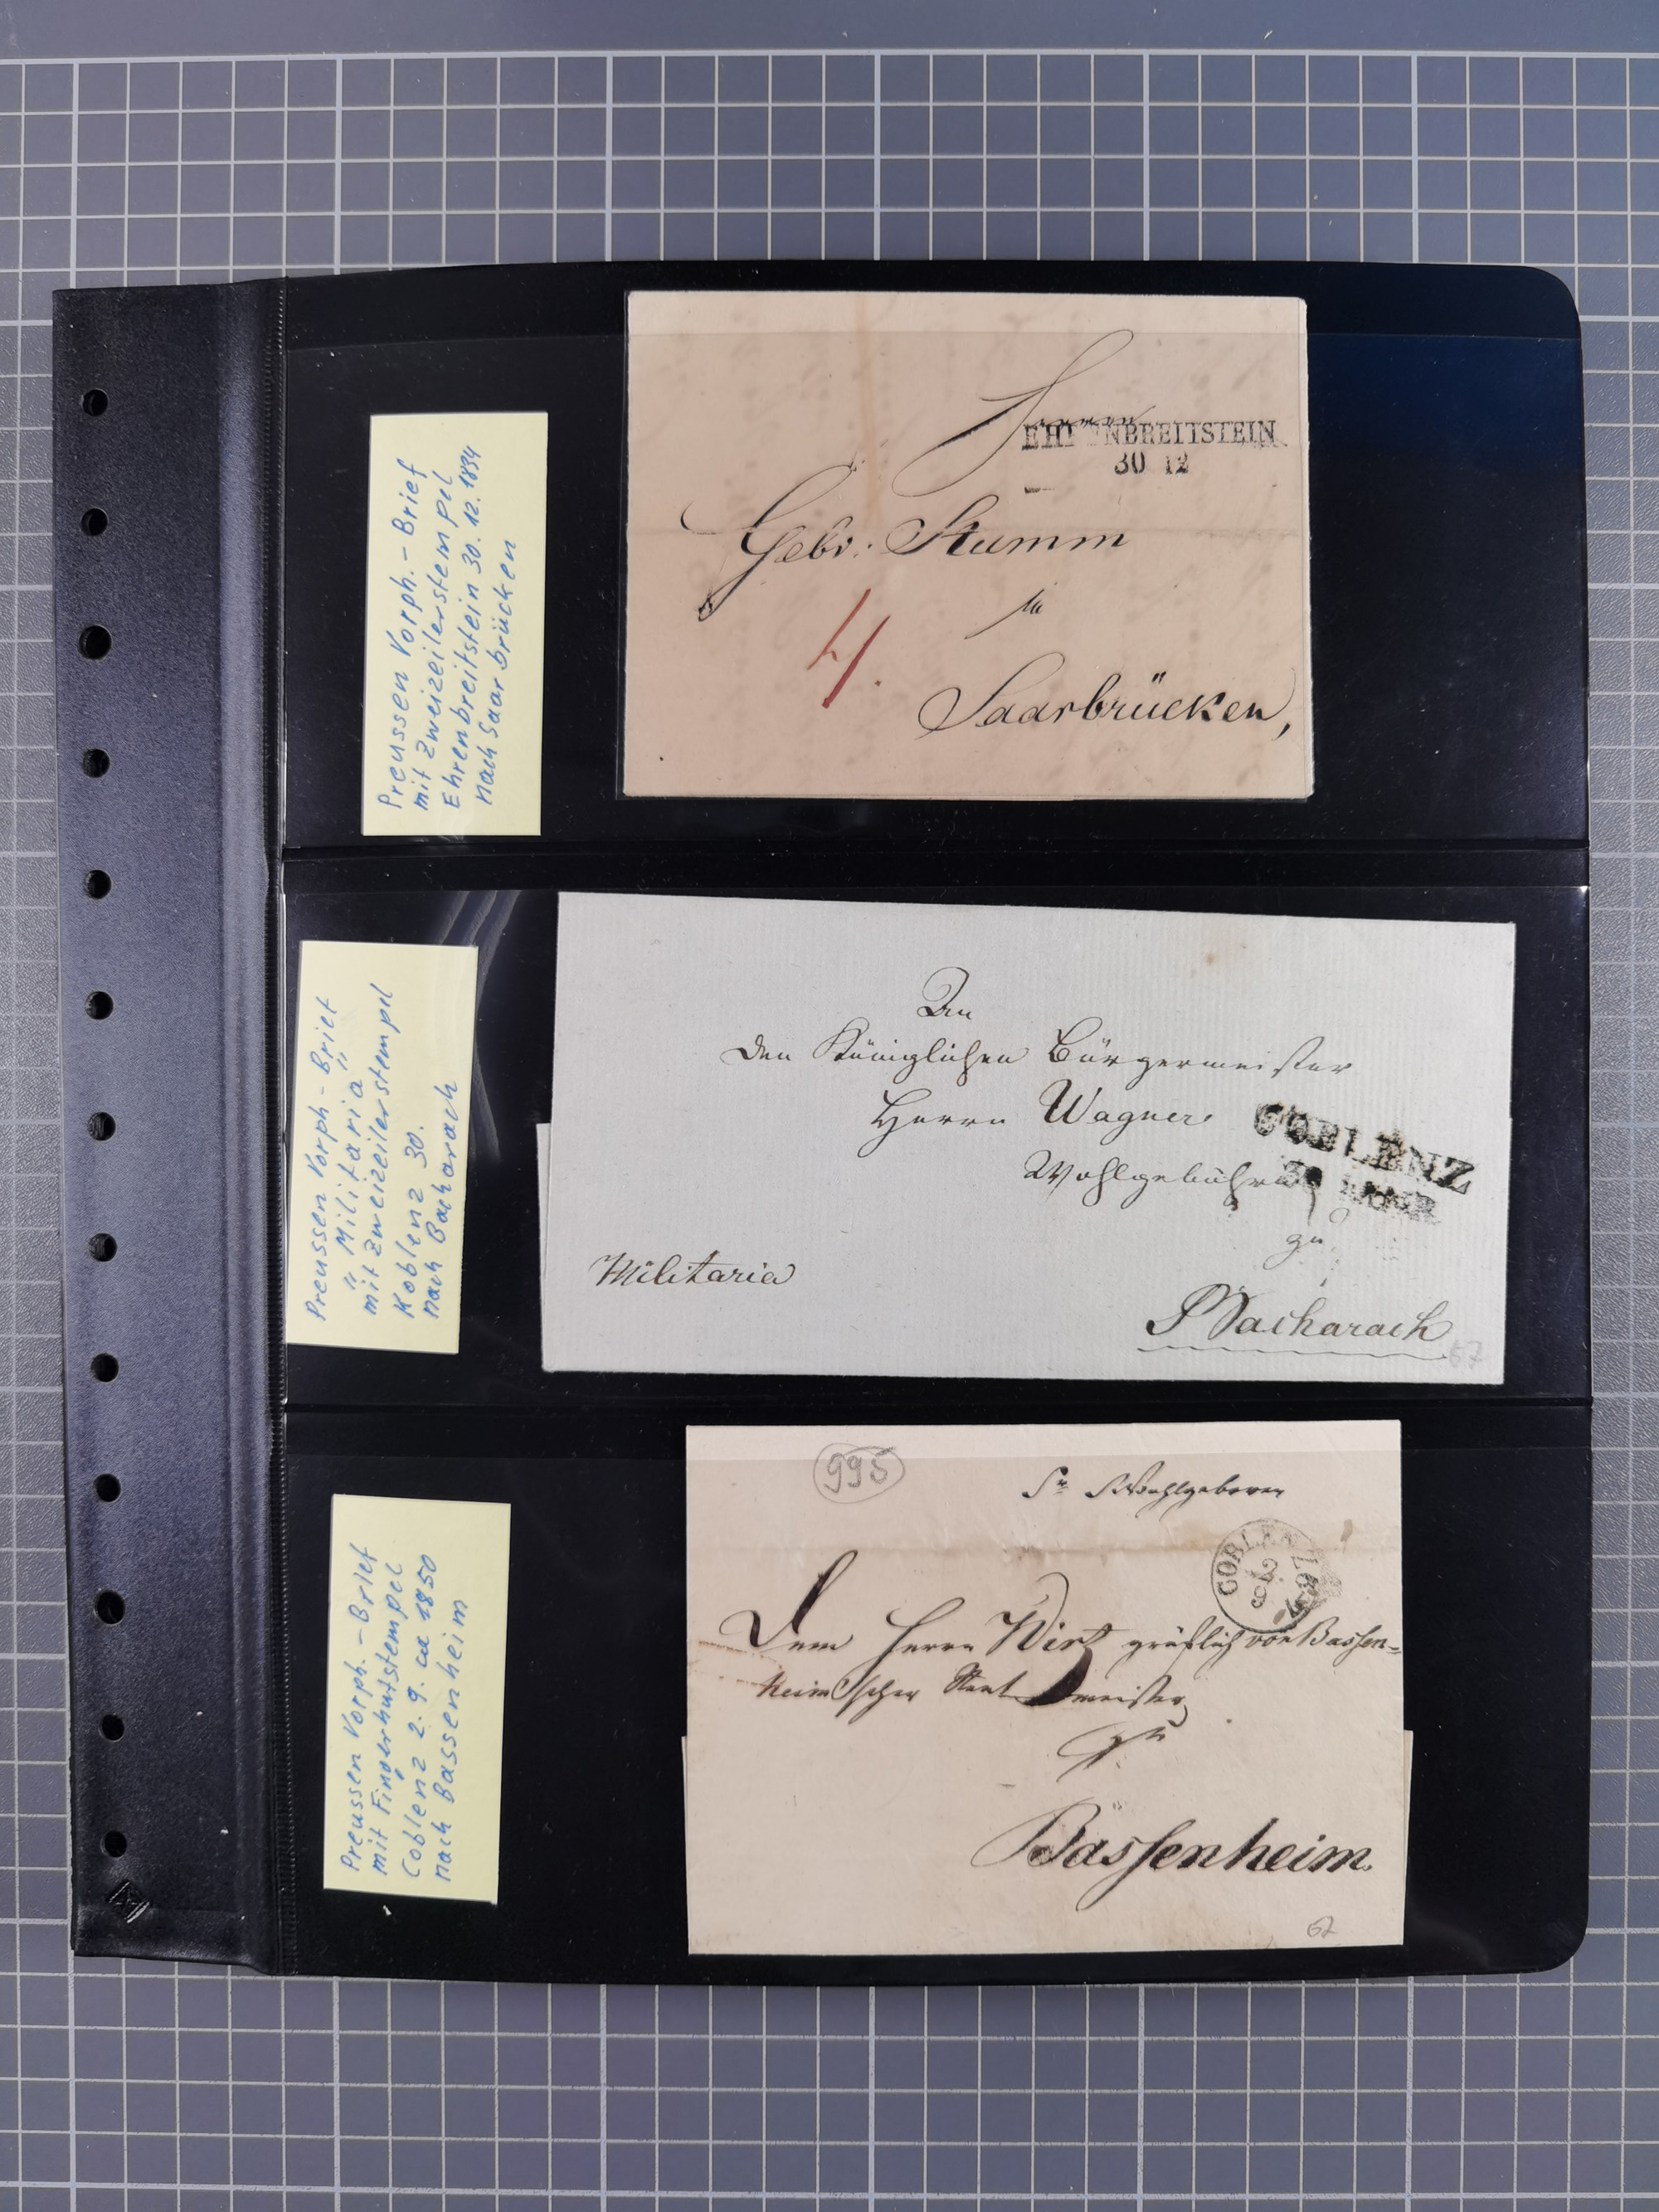 Preussen Vorph.-Brief
mit Zweizeilerstempel
Ehrenbreitstein 30.12.1834
nach Saarbrücken
Herren
EHRENBREITSTEIN
30 12
Gebr: Stumm
in
4.
Saarbrücken,
Preussen Vorph-Brief
"Militaria"
mit Zweizeilerstempel
Koblenz 30.
nach Bacharach
An
den Königlichen Bürgermeister
Herrn Wagner
Wohlgebohren
COBLENZ
30
zu
Militaria
Bacharach
67
Preussen Vorph.-Brief
mit Fingerhutstempel
Coblenz 2.9. ca 1850
nach Bassenheim
995
Sr Wohlgeboren
COBLENZ
2
9
Dem Herrn Wirz gräflich von Bassen=
heim'scher Rentmeister
zu
Bassenheim.
67